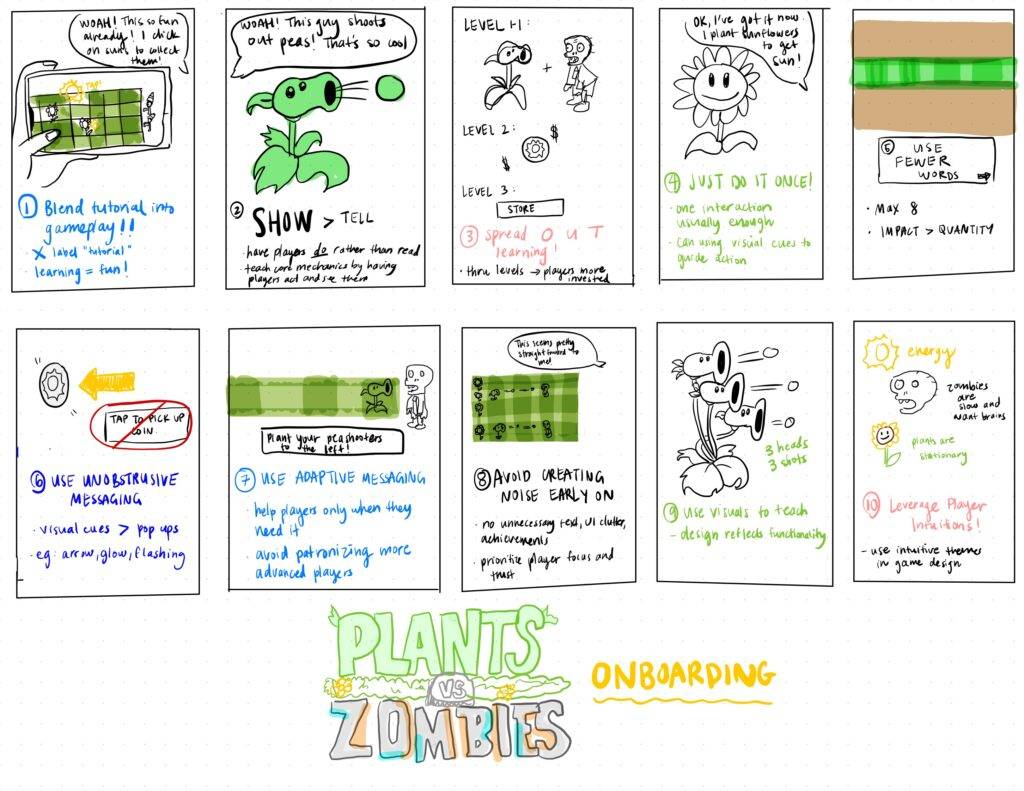 WOAH! This so fun
already! I click
on suns to collect
them!
TAP!
① Blend tutorial into
gameplay!!
X label "tutorial"
· learning = fun!
WOAH! This guy shoots
out peas! That's so cool
② SHOW > TELL
have players do rather than read
teach core mechanics by having
players act and see them
LEVEL 1-1:
+
LEVEL 2:
$
$
LEVEL 3:
STORE
③ spread O U T
learning!
· thru levels → players more
invested
OK, I've got it now.
I plant sunflowers
to get
sun!
④ JUST DO IT ONCE!
· one interaction
usually enough
· Can using visual cues to
guide action
⑤ USE
FEWER
WORDS
· Max 8
· IMPACT > QUANTITY
TAP TO PICK UP
COIN.
⑥ USE UNOBSTRUSIVE
MESSAGING
· visual cues > pop ups
· eg: arrow, glow, flashing
Plant your peashooters
to the left!
⑦ USE ADAPTIVE MESSAGING
· help players only when they
need it
· avoid patronizing more
advanced players
This seems pretty
straight forward to
me!
⑧ AVOID CREATING
NOISE EARLY ON
· no unnecessary text, UI clutter,
achievements
· prioritize player focus and
trust
3 heads
3 shots
⑨ USE visuals to teach
- design reflects functionality
energy
zombies
are
slow and
want brains
plants are
stationary
⑩ Leverage Player
Intuitions!
- use intuitive themes
in game design
PLANTS
VS
ZOMBIES
ONBOARDING